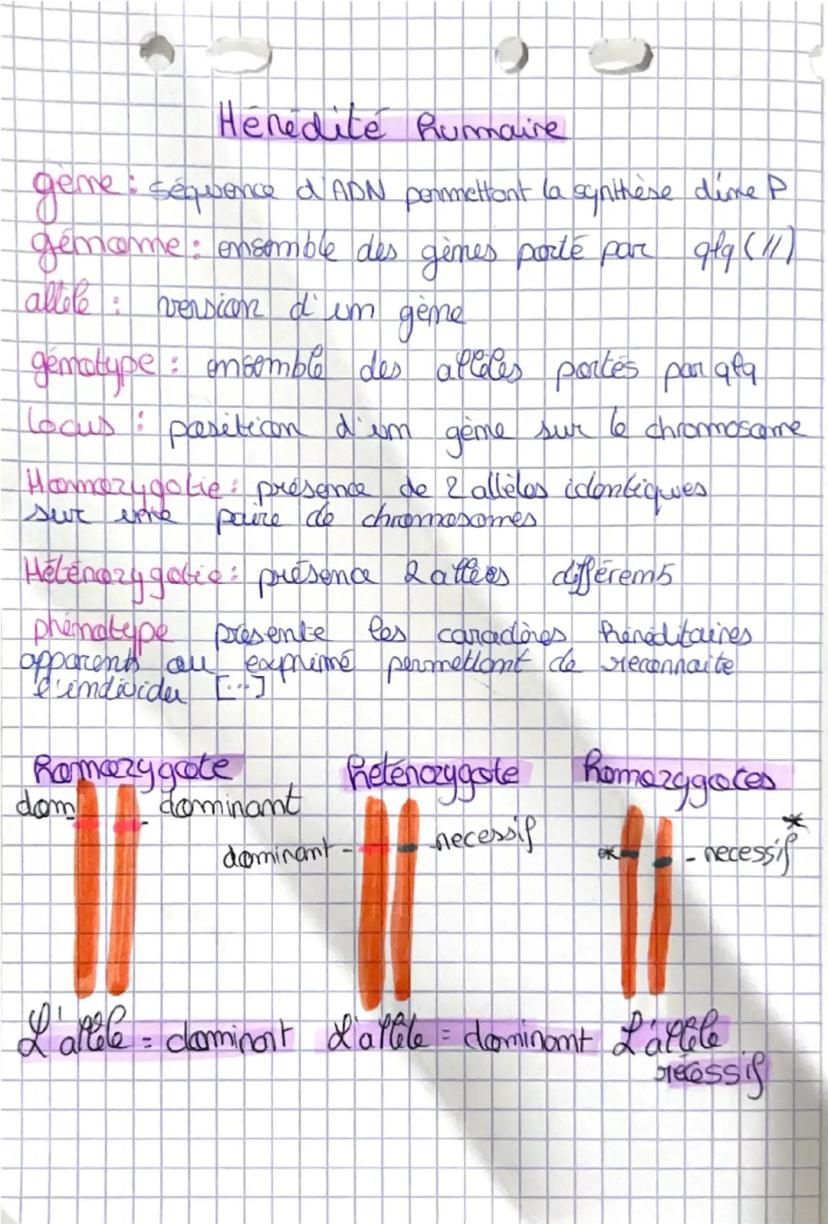 Hérédité humaine
gène : séquence d'ADN permettant la synthèse d'une P
génome : ensemble des gènes porté par qlq (//)
allèle : version d'un gène
génotype : ensemble des allèles portés par qlq
locus : position d'un gène sur le chromosome
Homozygotie : présence de 2 allèles identiques
sur une paire de chromosomes
Hétérozygotie : présence 2 allèes différents
phénotype présente les caractères héréditaires
apparents ou exprimé permettant de reconnaite
l'individu [...]
homozygote hétérozygote homozygotes
dom dominant
dominant - - recessif * - recessif *
L'allèle = dominant L'allèle = dominant L'allèle
récessif